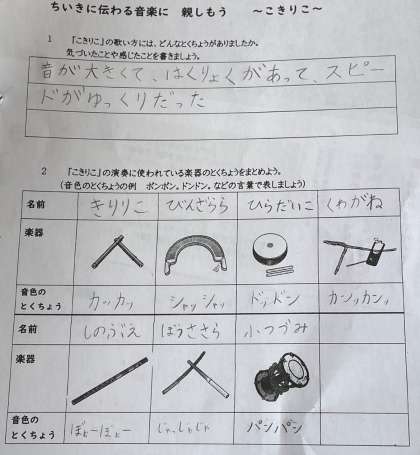 ちいきに伝わる音楽に 親しもう ～こきりこ～
1 「こきりこ」の歌い方には、どんなとくちょうがありましたか。
気づいたことや感じたことを書きましょう。
音が大きくて、はくりょくがあって、スピー
ドがゆっくりだった
2 「こきりこ」の演奏に使われている楽器のとくちょうをまとめよう。
(音色のとくちょうの例 ポンポン。ドンドン。などの言葉で表しましょう)
名前 きりりこ びんざさら ひらだいこ くわがね
楽器
音色の とくちょう カッカッ シャッシャッ ドンドン カンッカンッ
名前 しのぶえ ぼうささら 小つづみ
楽器
音色の とくちょう ぽょーぽょー じゃっじゃじゃ パンパン